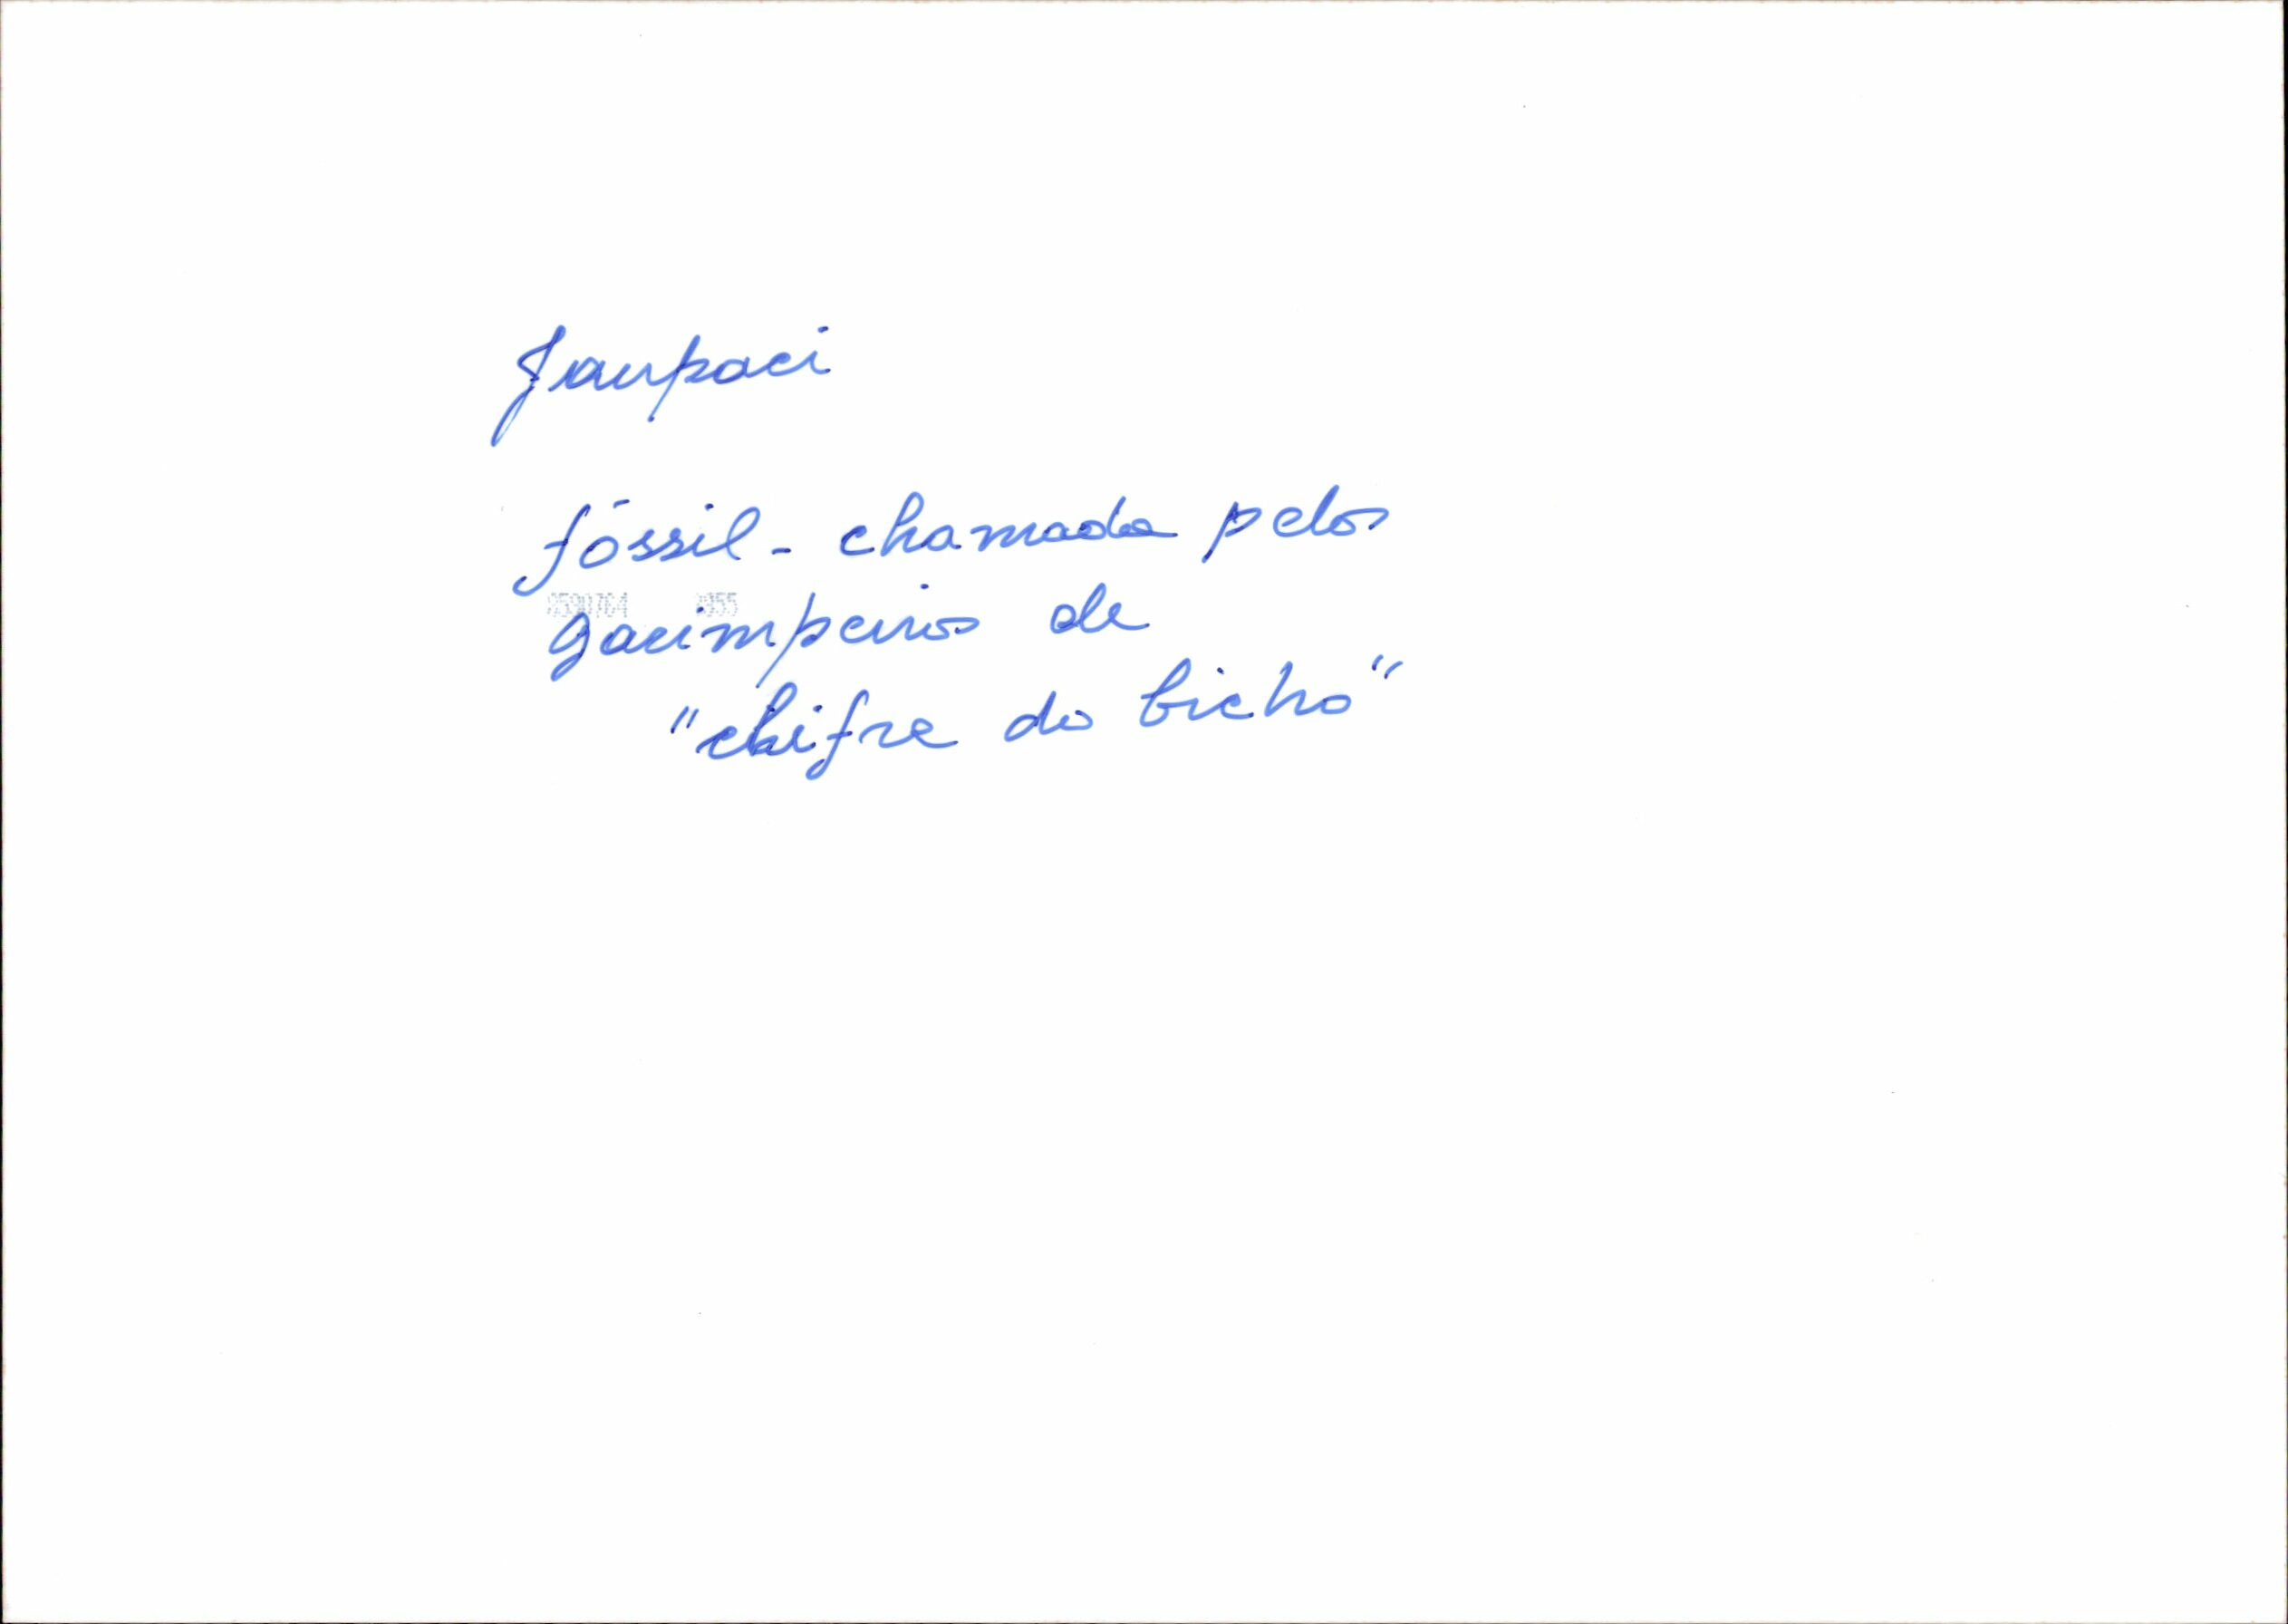 Jaupaci
fóssil - chamado pelos
garimpeiros de
"chifre do bicho"